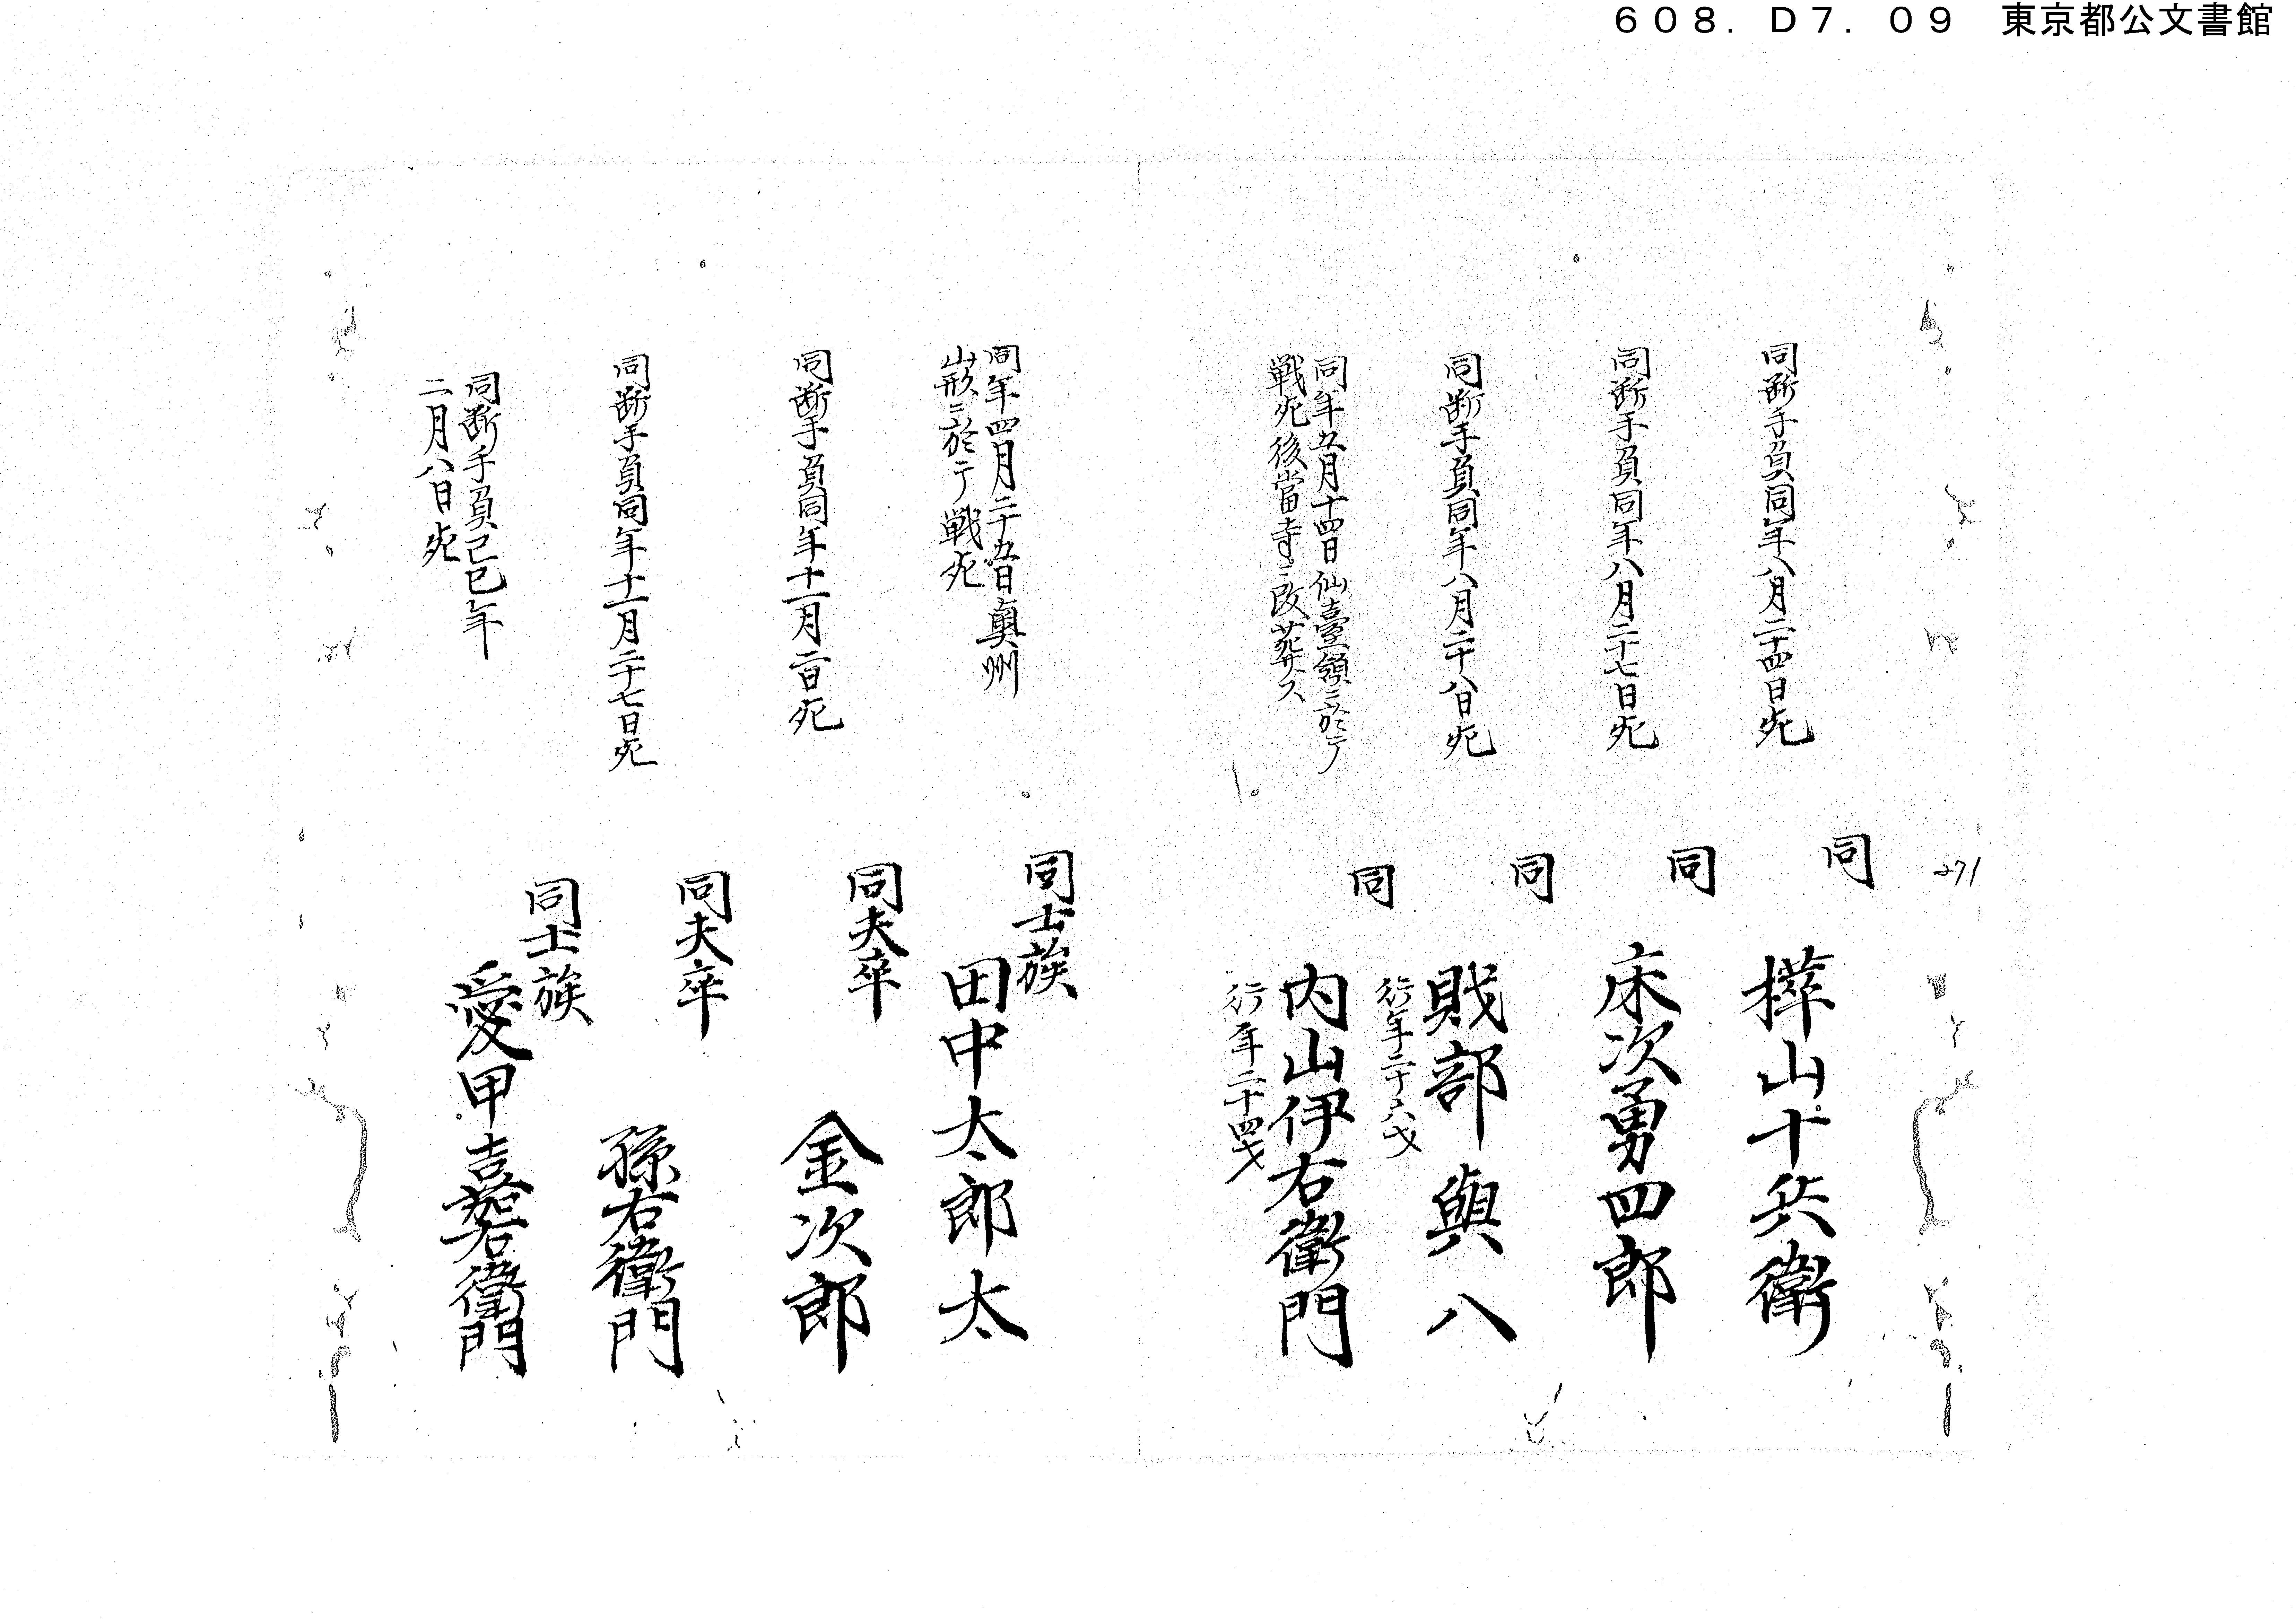 608. D7. 09 東京都公文書館
271
同断手負同年八月二十四日死
同
樺山十兵衛
同断手負同年八月二十七日死
同
床次勇四郎
同断手負同年八月二十八日死
同
財部與八
行年二十八才
同年五月十四日仙臺領ニ於テ
戦死後當寺ニ改葬ス
同
内山伊右衛門
行年二十四才
同年四月二十五日奥州
山形ニ於テ戦死
同士族
田中太郎太
同断手負同年十一月二日死
同夫卒
金次郎
同断手負同年十一月二十七日死
同夫卒
孫右衛門
同断手負己巳年
二月八日死
同士族
愛甲喜右衛門